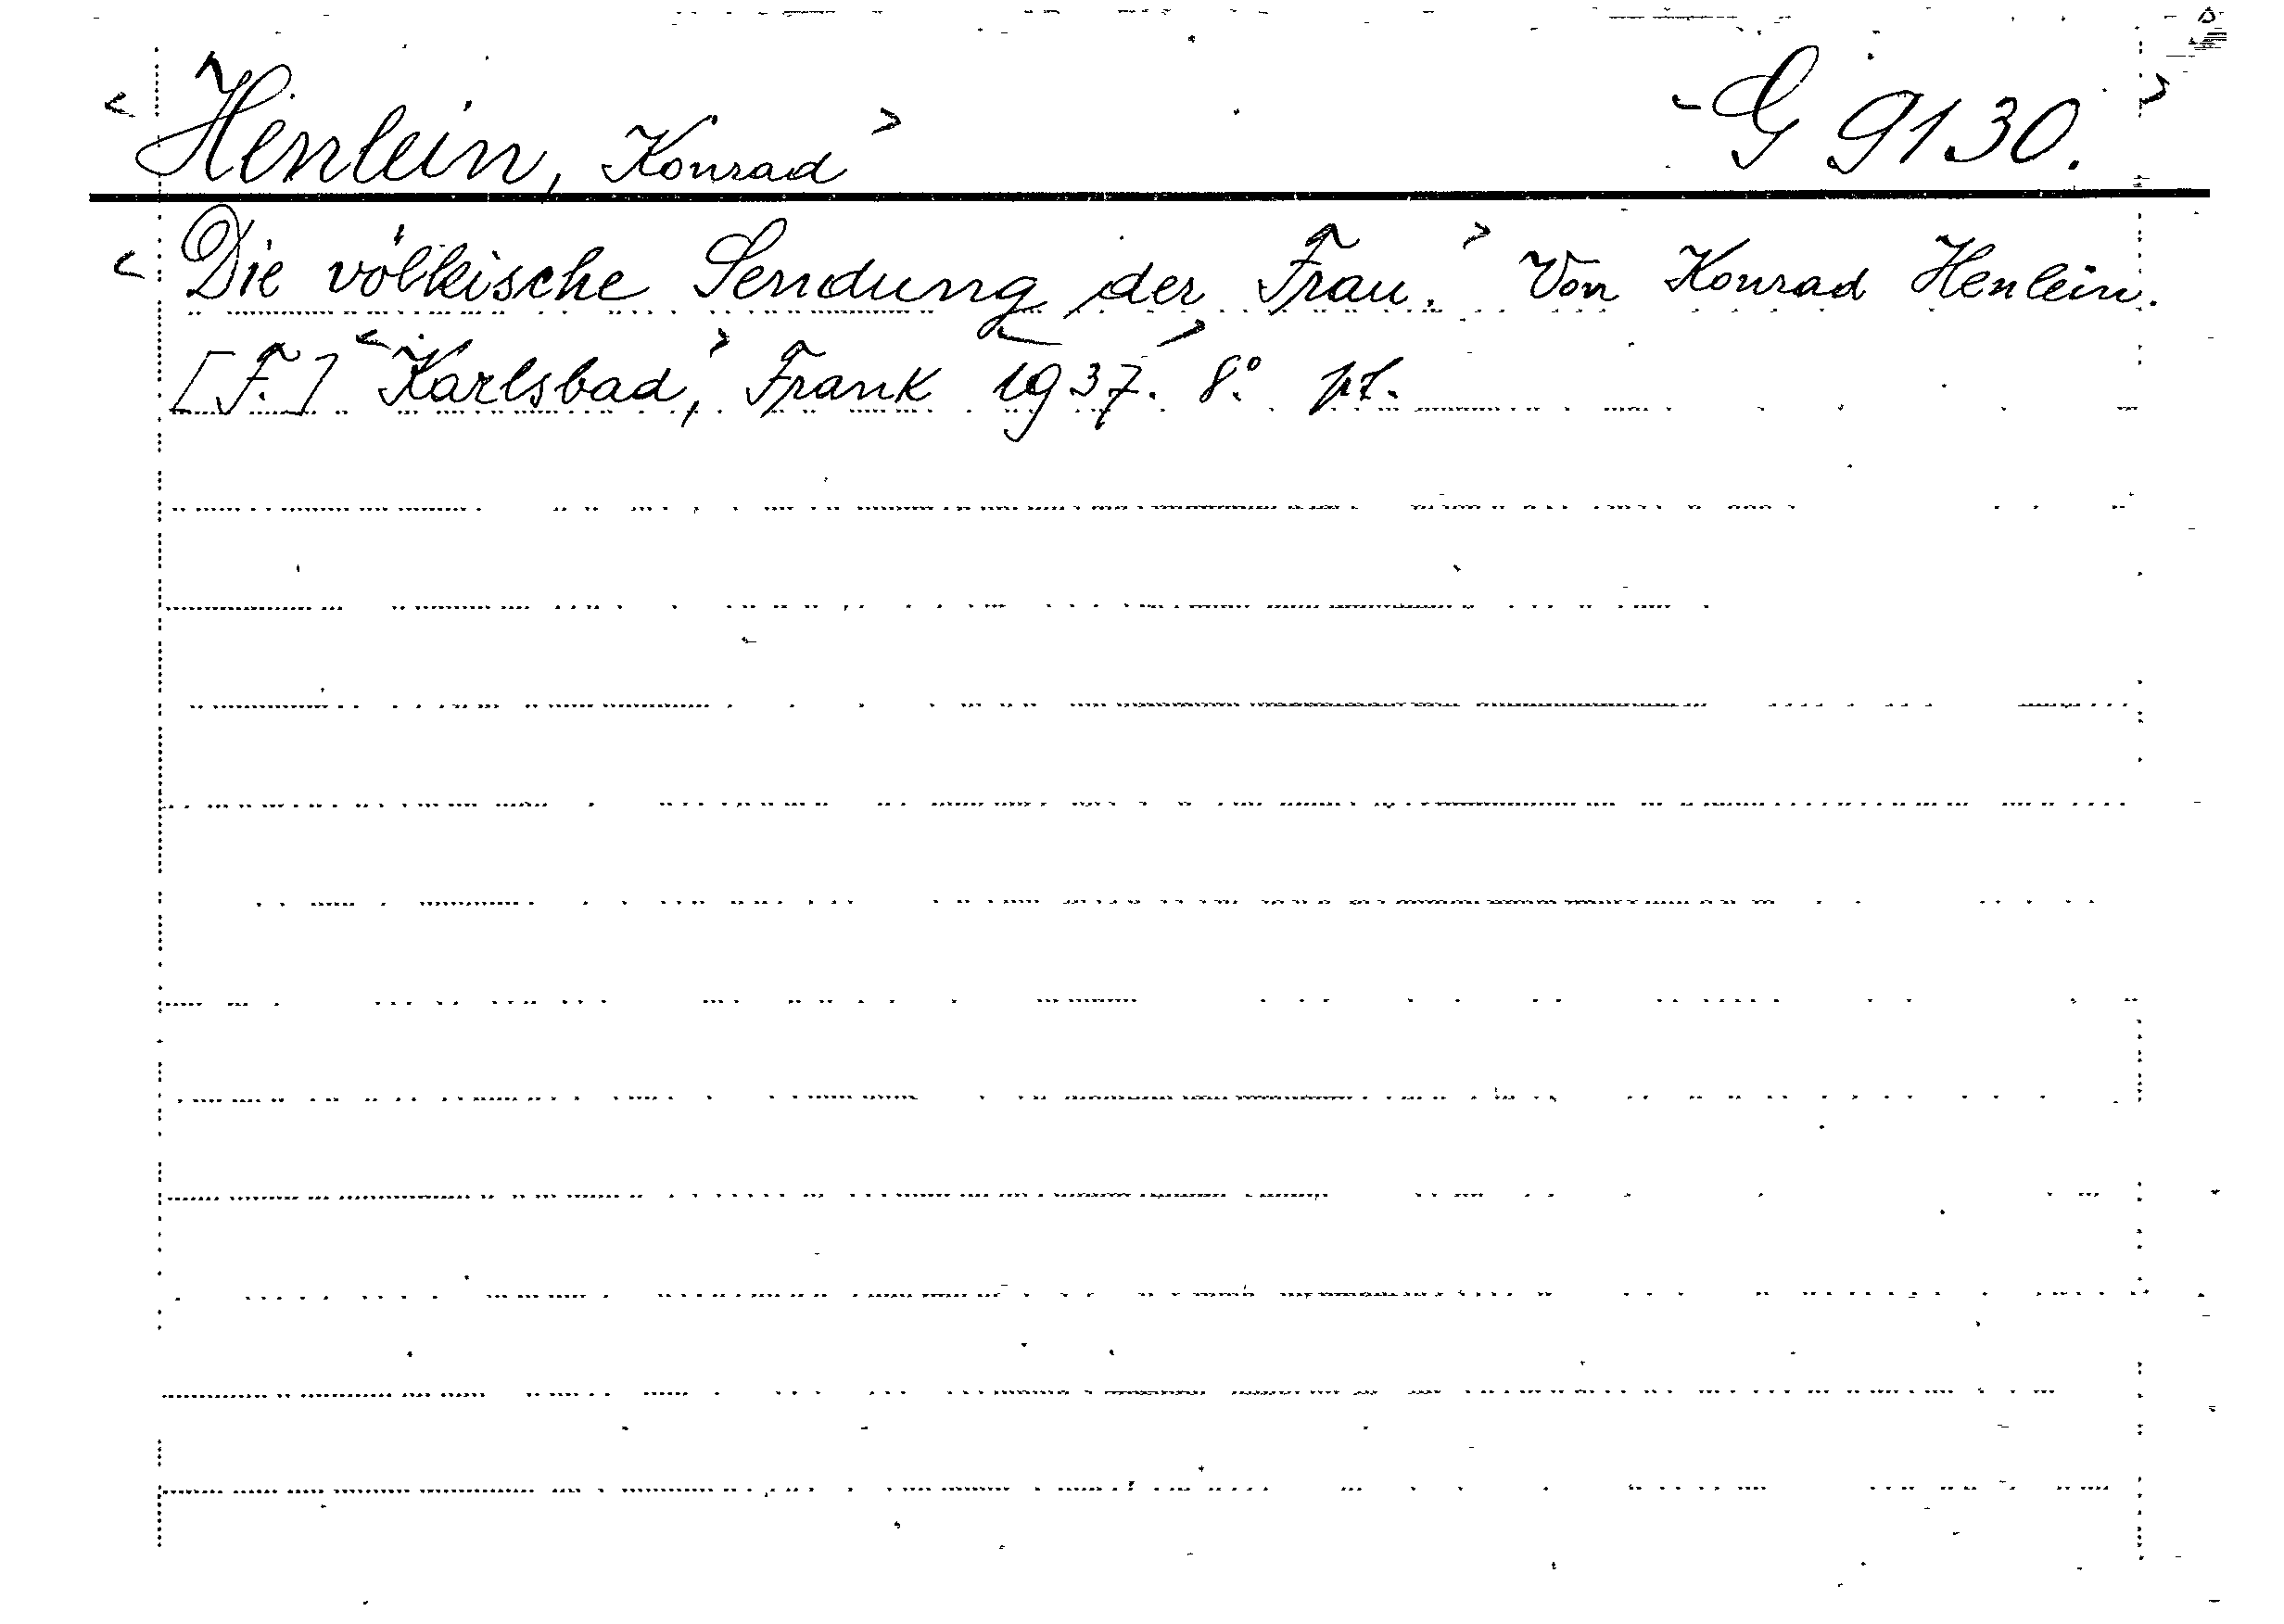 < Henlein, Konrad > - G 9130. >
< Die völkische Sendung der Frau. > Von Konrad Henlein.
[F.] < Karlsbad, > Frank < 1937. > 8° pt.